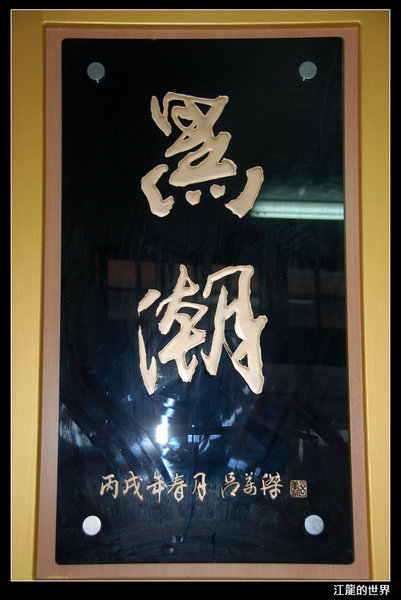 黑潮
丙戌年春月 呂萬傑
江龍的世界